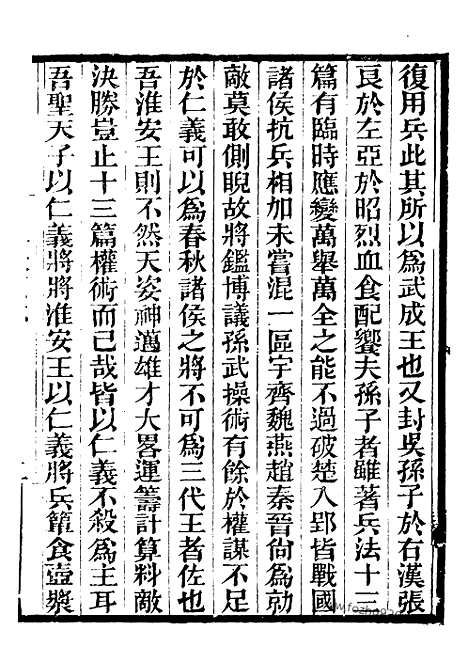 復用兵此其所以爲武成王也又封吳孫子於右漢張
良於左亞於昭烈血食配饗夫孫子者雖著兵法十三
篇有臨時應變萬舉萬全之能不過破楚入郢皆戰國
諸侯抗兵相加未嘗混一區宇齊魏燕趙秦晉尙爲勍
敵莫敢側睨故將鑑博議孫武操術有餘於權謀不足
於仁義可以爲春秋諸侯之將不可爲三代王者佐也
吾淮安王則不然天姿神邁雄才大畧運籌計算料敵
決勝豈止十三篇權術而已哉皆以仁義不殺爲主耳
吾聖天子以仁義將將淮安王以仁義將兵簞食壺漿